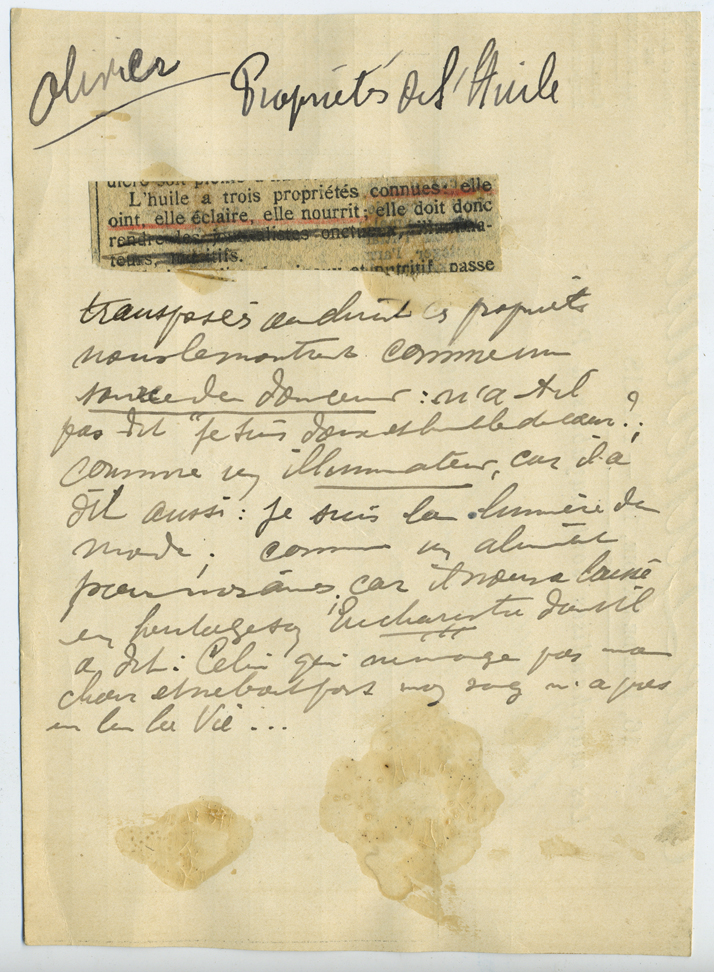 Olivier
Propriétés de l'Huile
L'huile a trois propriétés connues: elle
oint, elle éclaire, elle nourrit; elle doit donc
rendre les journalistes onctueux, illumina-
teurs, nutritifs.
et nutritif, passe
transposés au divin ces propriétés
nous le montrent comme un
source de douceur : n'a t-il
pas dit "je suis doux et humble de cœur?;
comme un illuminateur, car il a
dit aussi : je suis la lumière du
monde; comme un aliment
pour nos âmes, car il nous a laissé
en son Eucharistie dont il
a dit : Celui qui ne mange pas ma
chair et ne boit pas mon sang n'a pas
en lui la Vie ...